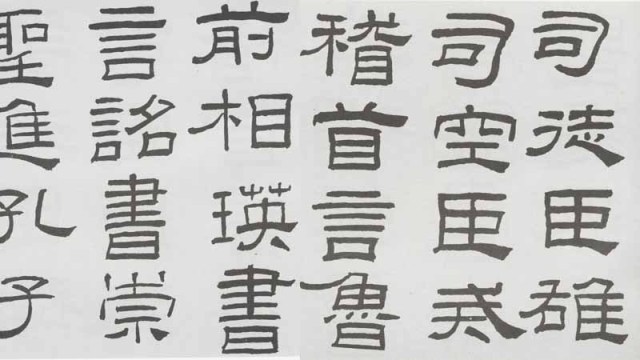 司徒臣雄
司空臣戒
稽首言魯
前相瑛書
言詔書崇
聖進孔子